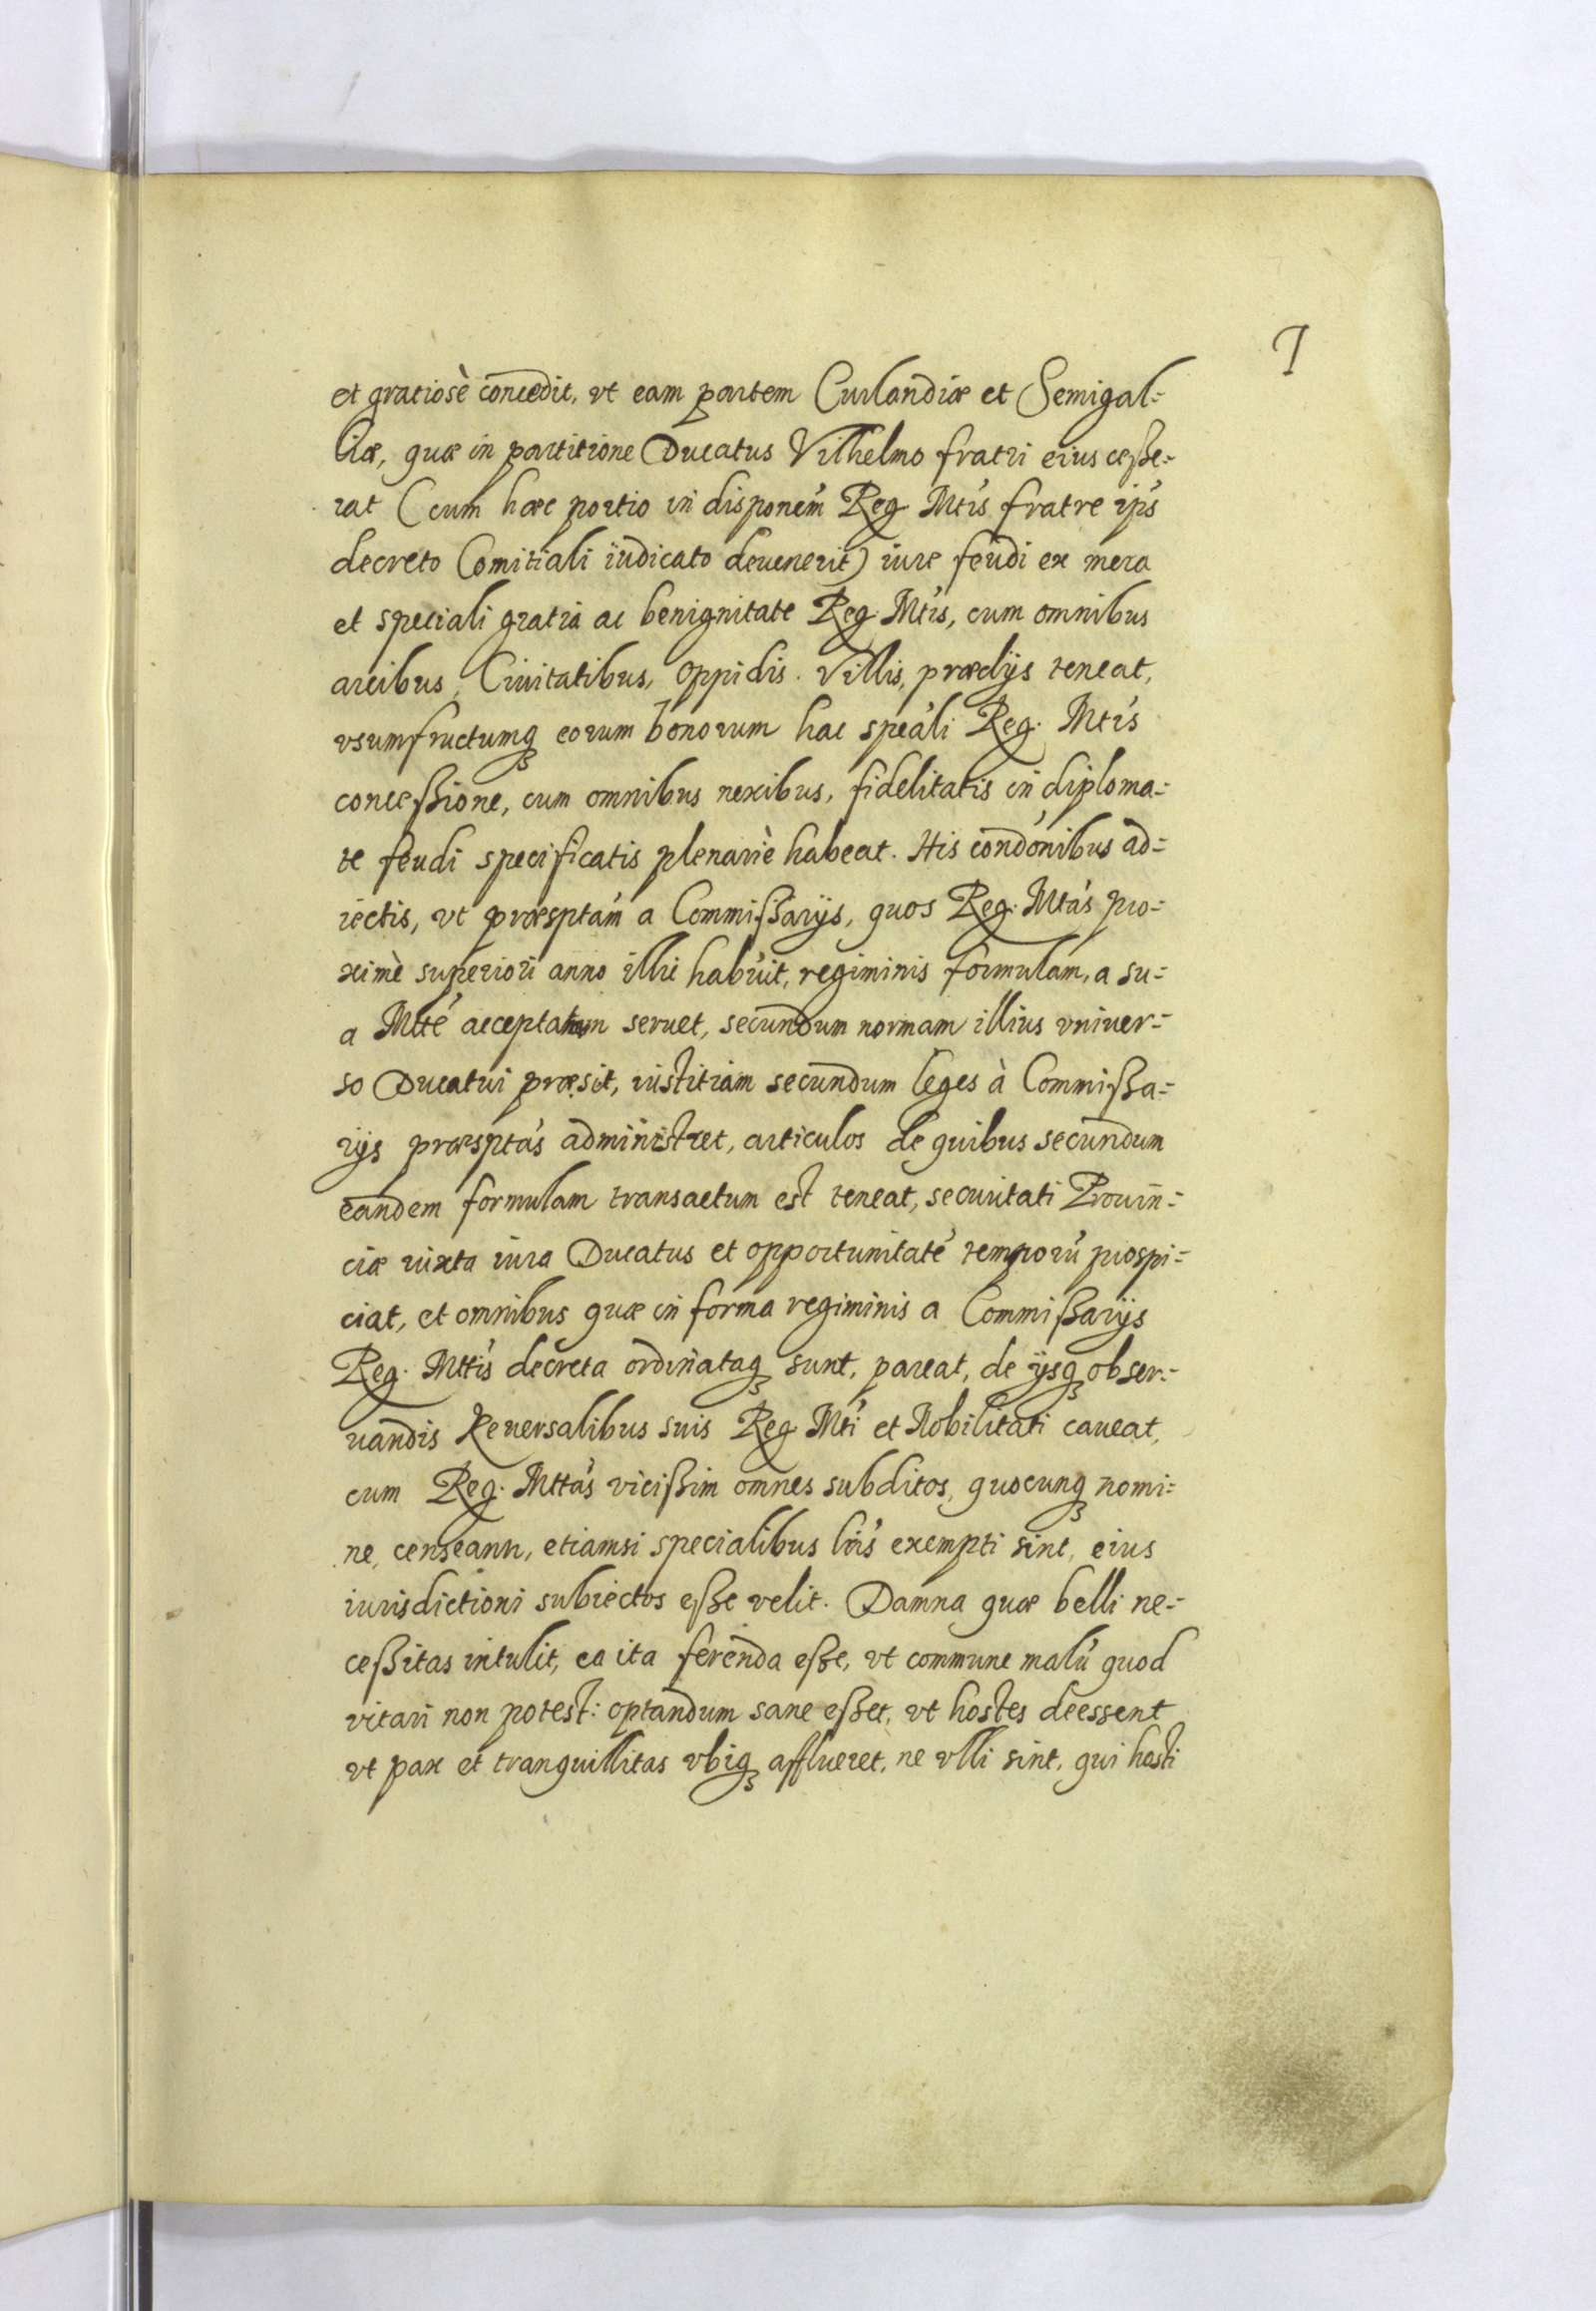 I
et gratiosè concedit, vt eam partem Curlandiæ et Semigal=
liæ, quæ in partitione Ducatus Vilhelmo fratri eius ceße=
rat (cum hæc portio in disponem̃ Reg Mtis fratre ips̃
decreto Comitiali iudicato deuenerit) iure feudi ex mera
et speciali gratia ac benignitate Reg. Mtis, cum omnibus
arcibus, Ciuitatibus, Oppidis. Villis, prædijs teneat,
vsumfructumq3 eorum bonorum hac speáli Reg. Mtis
conceßione, cum omnibus nexibus, fidelitatis in diploma=
te feudi specificatis plenariè habeat. His condónibus ad=
iectis, vt præsptam̃ a Commißarijs, quos Reg. Mtás pro=
ximè superiori anno illic habuit, regiminis formulam, a su=
a Mtté acceptatam seruet, secundum normam illius vniuer=
so Ducatui præsit, iustitiam secundum leges à Commißa=
rijs præsptás administret, articulos de quibus secundum
eandem formulam transactum est teneat, securitati Prouin=
ciæ iuxta iura Ducatus et opportunitaté temporú prospi=
ciat, et omnibus quæ in forma regiminis a Commißarijs
Reg. Mttis decreta ordinataq3 sunt, pareat, de ijsq3 obser=
uandis Reuersalibus suis Reg Mti et Nobilitati caueat,
cum Reg. Mttás vicißim omnes subditos, quocunq3 nomi=
ne, censeantr, etiamsi specialibus lris exempti sint, eius
iurisdictioni subiectos eße velit. Damna quæ belli ne=
ceßitas intulit, ea ita ferenda eße, vt commune malú quod
vitari non potest: optandum sane eßet, vt hostes deessent
vt pax et tranquillitas vbiq3 afflueret, ne vlli sint, qui hosti